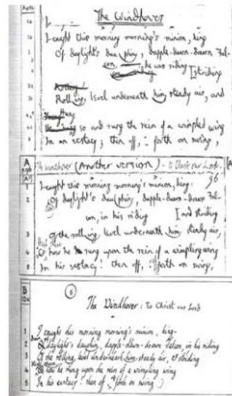 The Windhover
I caught this morning morning's minion, king
Of daylight's dauphin, dapple-dawn-drawn Fal-
con, he was riding
[striding
Rolling level underneath him steady air, and
so and rung the rein of a wimpled wing
In an ecstacy; then off, forth on swing,
The Windhover (Another version) - to Christ our Lord
I caught this morning morning's minion, king-
Of daylight's dauphin, dapple-dawn-drawn Fal-
con, in his riding
[and striding
Of the rolling level underneath him steady air,
how he rung upon the rein of a wimpling wing
In his ecstacy! then off, forth on swing,
B
The Windhover: to Christ our Lord
I caught this morning morning's minion, king-
dom of daylight's dauphin, dapple-dawn-drawn Falcon, in his riding
Of the rolling level underneath him steady air, & striding
how he rung upon the rein of a wimpling wing
In his ecstacy! then off, forth on swing